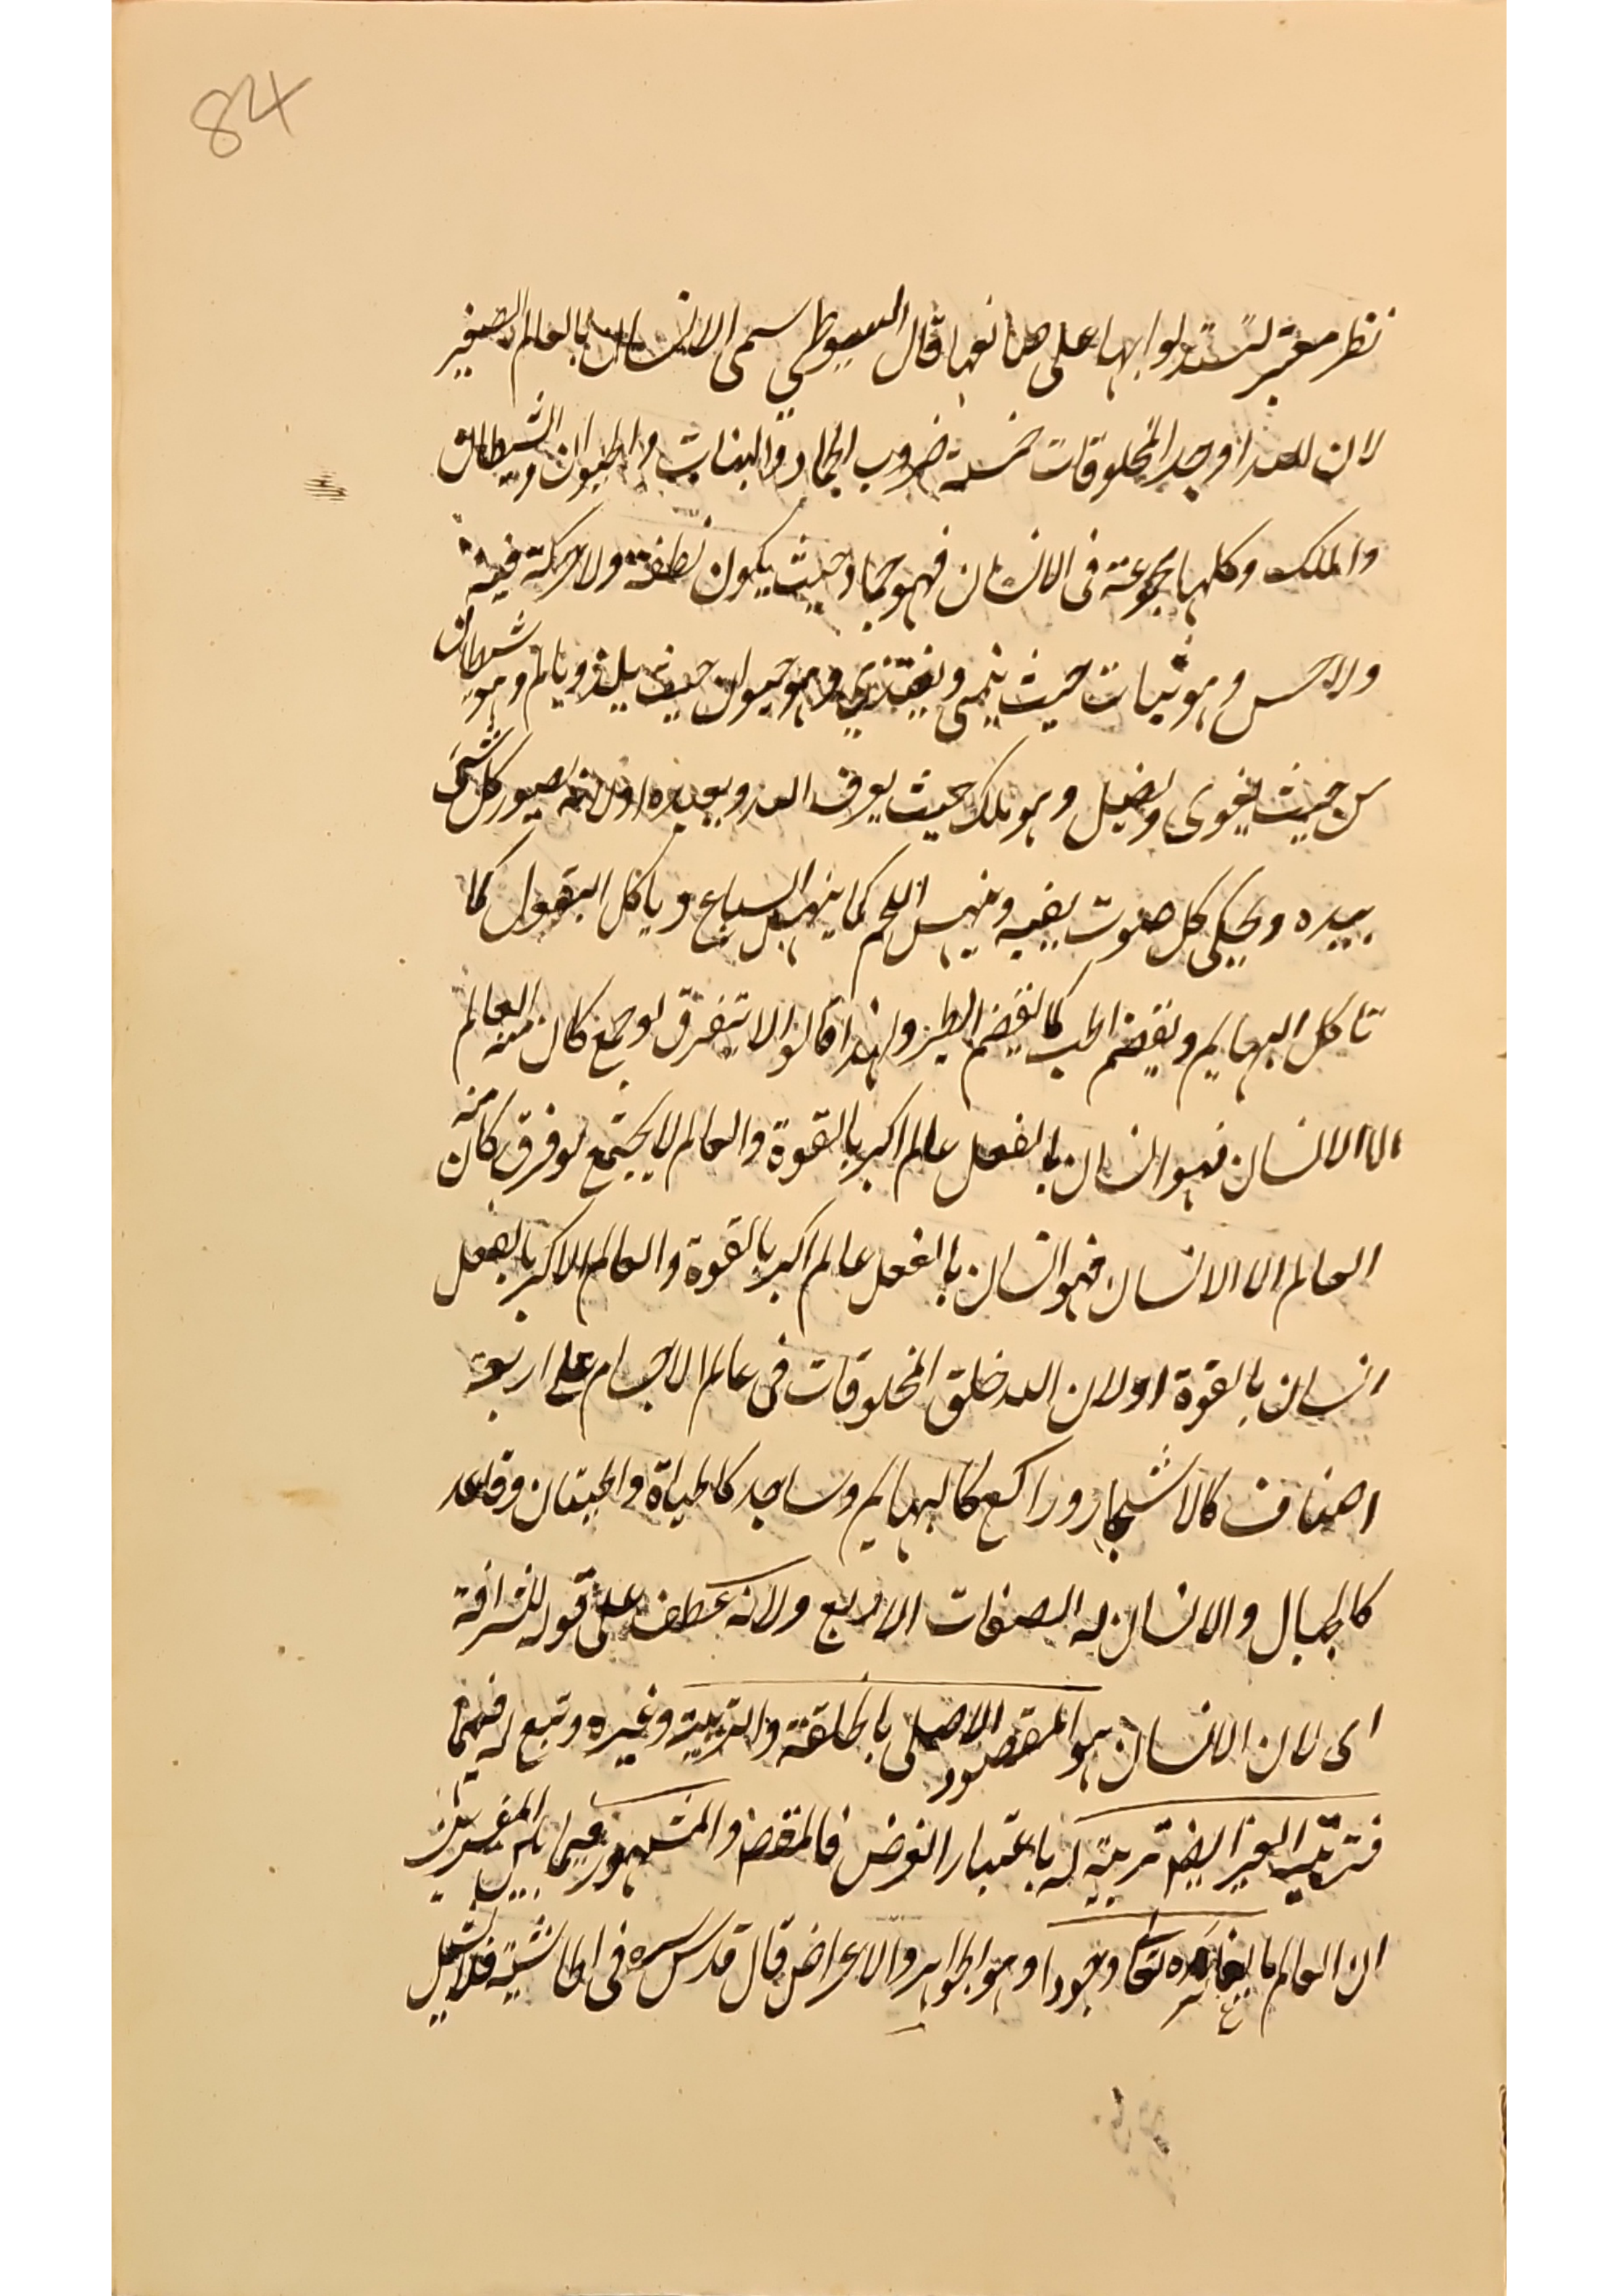 84
نظر معتبر لتستدلوا بها على صانعها قال السيوطي سمى الانسان بالعالم الصغير
لان الله اوجد المخلوقات خمسة ضروب الجماد والنبات والحيوان والشيطان
والملك وكلها مجموعة فى الانسان فهو جماد حيث يكون نطفة ولا حركة فيه
ولا حس وهو نبات حيث ينمى ويغتذي وهو حيوان حيث يلذ ويالم وهو شيطان
من حيث يغوى ويضل وهو ملك حيث يعرف الله ويعبده اولانه يصور كل شئ
بيده ويحكى كل صوت بفيه وينهس اللحم كما ينهس السباع وياكل البقول كما
تاكل البهايم ويقضم الحب كما يقضم الطير ولهذا قالوا لا يتفرق لو جمع كان منه العالم
الا الانسان فهو انسان بالفعل عالم اكبر بالقوة والعالم لا يجتمع لو فرق كان منه
العالم الا الانسان فهو انسان بالفعل عالم اكبر بالقوة والعالم الاكبر بالفعل
انسان بالقوة اولان الله خلق المخلوقات فى عالم الاجسام على اربعة
اصناف كالاشجار وراكع كالبهايم وساجد كالحياة والحيتان وقاعد
كالجبال والانسان له الصفات الاربع ولانه عطف على قوله لشرافة
اى لان الانسان هو المقصود الاصلى بالخلقة والتربية وغيره وتبع له فيهما
فتربية الغير ايضم تربية له باعتبار الغرض فالمقصم والمشهور فيما بين المفسرين
ان العالم ما يغايره تعا وجودا وهو الجواهر والاعراض قال قدس سره فى الحاشية فلا يشمل